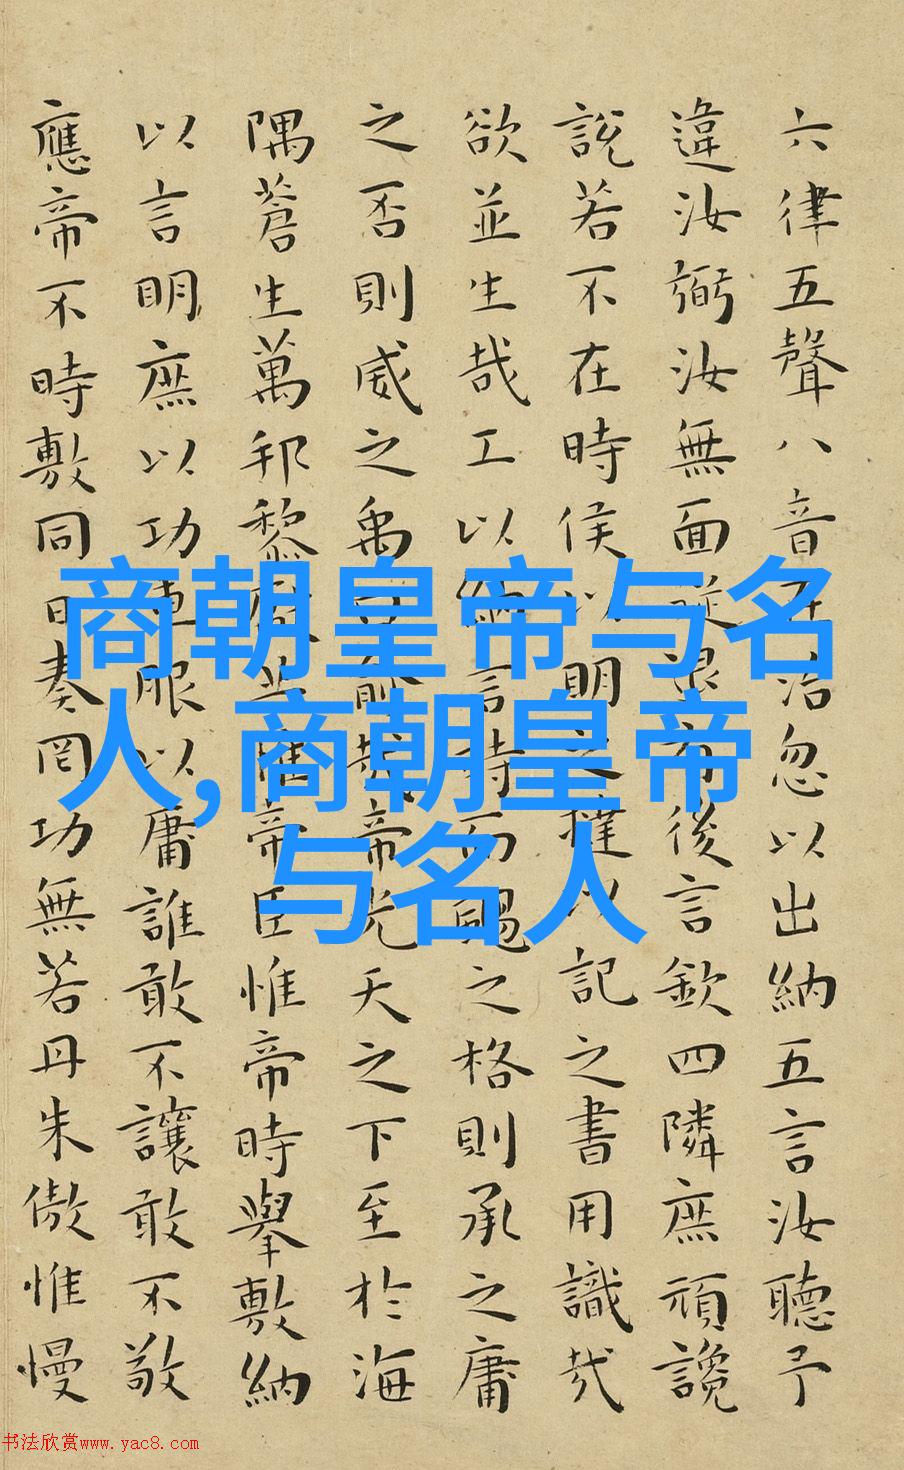 六律五聲八音在治忽以出納五言汝聽予
違汝弼汝無面從退有後言欽四隣庶頑讒
說若不在時侯以明之撻以記之書用識哉
欲並生哉工以納言時而颺之格則承之庸
之否則威之禹曰俞哉帝光天之下至於海
隅蒼生萬邦黎獻共惟帝臣惟帝時舉敷納
以言明庶以功車服以庸誰敢不讓敢不敬
應帝不時敷同日奏罔功無若丹朱傲惟慢
商朝皇帝与名
人,商朝皇帝
与名人
书法欣赏www.yac8.com